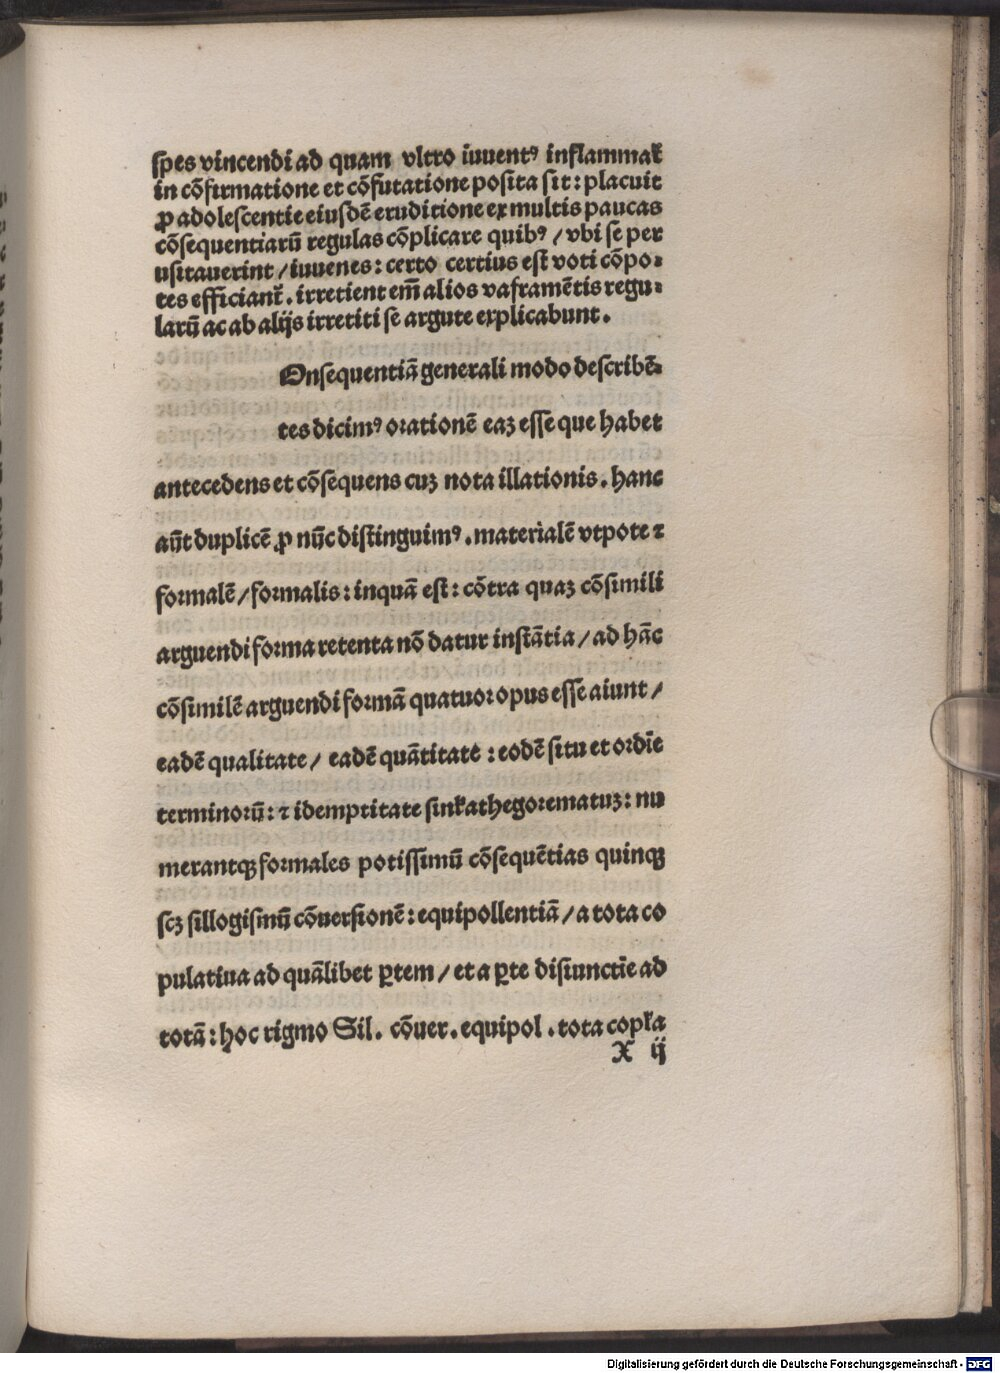 spes vincendi ad quam vltro iuuentꝰ inflammat᷑
in cōfirmatione et cōfutatione posita sit: placuit
ꝓ adolescentie eiusdē eruditione ex multis paucas
cōsequentiarū regulas cōplicare quibꝰ / vbi se per
usitauerint / iuuenes: certo certius est voti cōpo⸗
tes efficiant᷑. irretient em̄ alios vaframētis regu⸗
larū ac ab alijs irretiti se argute explicabunt.
Onsequentiā generali modo describē⸗
tes dicimꝰ orationē eaꝫ esse que habet
antecedens et cōsequens cuꝫ nota illationis. hanc
aūt duplicē ꝓ nūc distinguimꝰ. materialē vtpote ⁊
formalē / formalis: inquā est: cōtra quaꝫ cōsimili
arguendi forma retenta nō datur instātia / ad hāc
cōsimilē arguendi formā quatuor opus esse aiunt /
eadē qualitate / eadē quātitate: eodē situ et ordīe
terminorū: ⁊ idemptitate sinkathegorematuꝫ: nu
merantqꝫ formales potissimū cōsequētias quinqꝫ
scꝫ sillogismū cōuersionē: equipollentiā / a tota co
pulatiua ad quālibet ꝑtem / et a ꝑte disiunctīe ad
totā: hoc rigmo Sil. cōuer. equipol. tota copl̕a
X ij
Digitalisierung gefördert durch die Deutsche Forschungsgemeinschaft - DFG